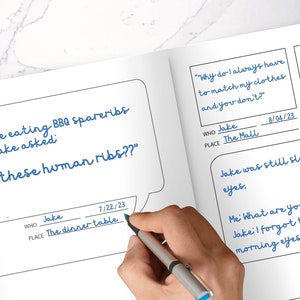 e eating BBQ spareribs
ake asked:
these human ribs??"
WHO Jake 7/22/23
PLACE The dinner table
"Why do I always have
to match my clothes
and you don't?"
WHO Jake 8/04/23
PLACE The Mall
Jake was still sl
eyes.
Me: What are you
Jake: I forgot
morning eyes